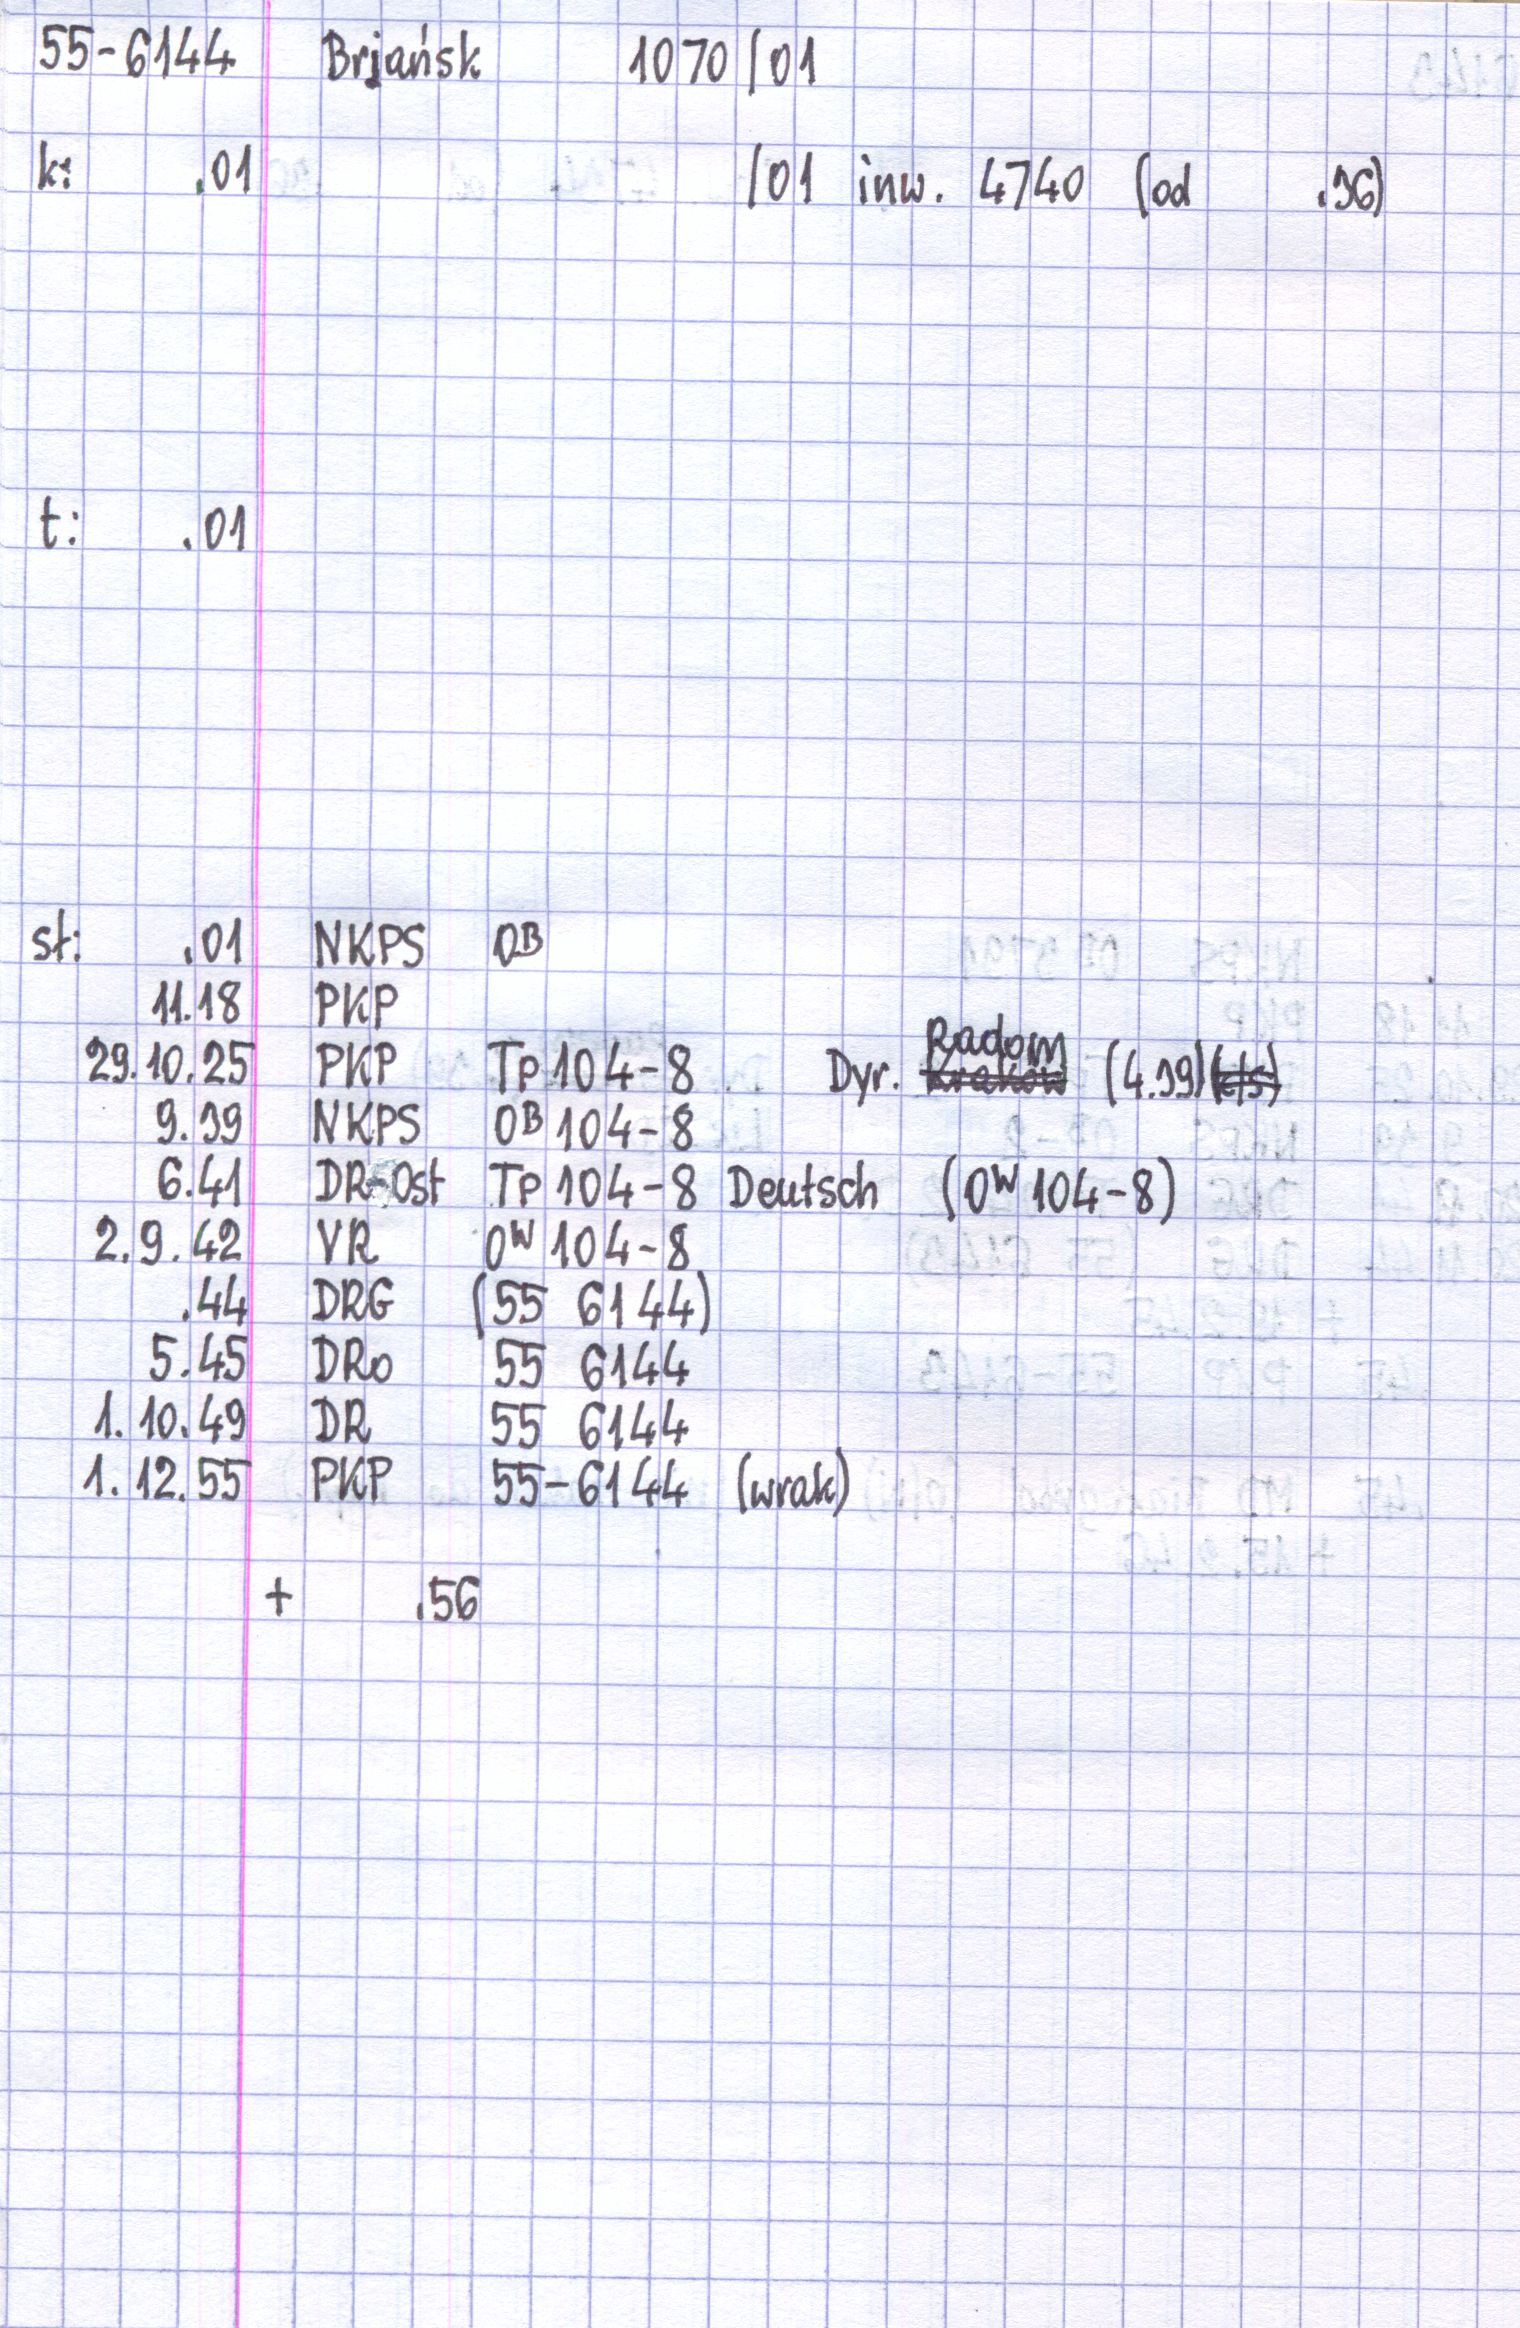 55-6144 Brjańsk 1070/01
k: .01 /01 inw. 4740 (od .36)
t: .01
st: .01 NKPS Oᴮ
11.18 PKP
Radom
29.10.25 PKP Tp 104-8 Dyr. Kraków (4.39)
9.39 NKPS Oᴮ 104-8
6.41 DR-Ost Tp 104-8 Deutsch (Oᵂ 104-8)
2.9.42 VR Oᵂ 104-8
.44 DRG (55 6144)
5.45 DRo 55 6144
1.10.49 DR 55 6144
1.12.55 PKP 55-6144 (wrak)
+ .56